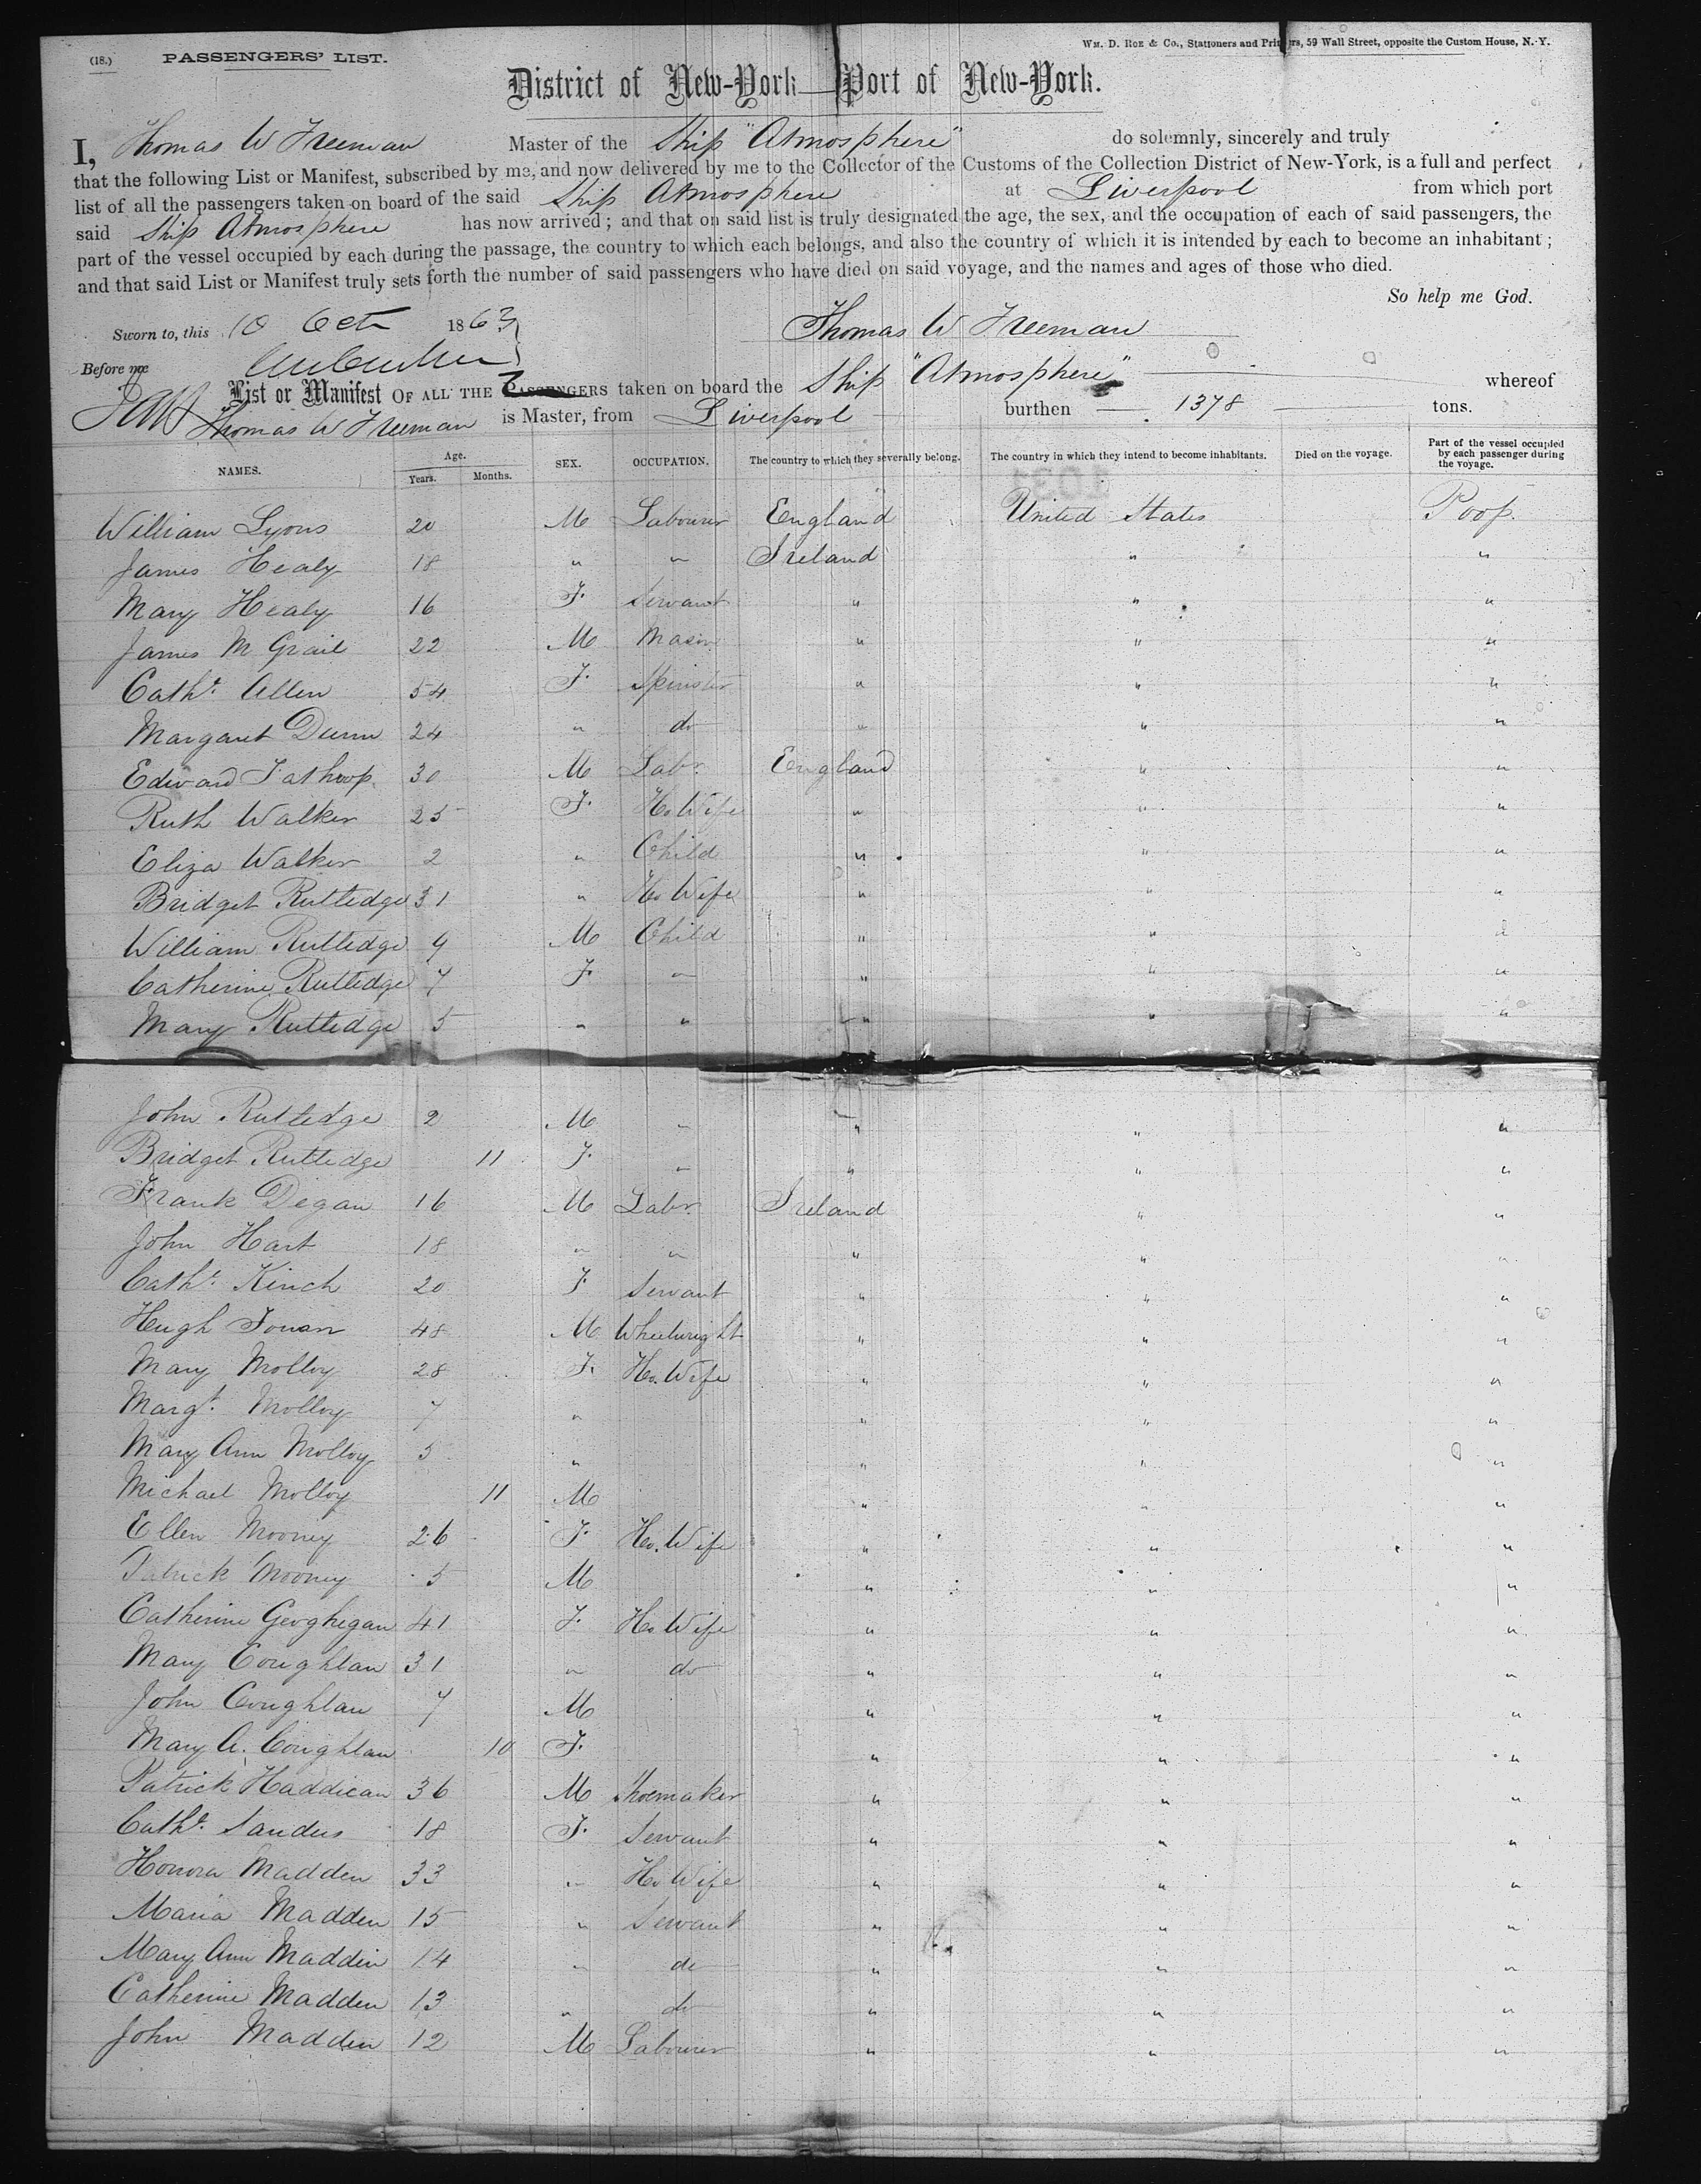 (18.) PASSENGERS' LIST. WM. D. ROE & CO., Stationers and Printers, 59 Wall Street, opposite the Custom House, N.Y.
District of New-York—Port of New-York.
I, Thomas W Freeman Master of the Ship "Atmosphere" do solemnly, sincerely and truly
that the following List or Manifest, subscribed by me, and now delivered by me to the Collector of the Customs of the Collection District of New-York, is a full and perfect
list of all the passengers taken on board of the said Ship Atmosphere at Liverpool from which port
said Ship Atmosphere has now arrived; and that on said list is truly designated the age, the sex, and the occupation of each of said passengers, the
part of the vessel occupied by each during the passage, the country to which each belongs, and also the country of which it is intended by each to become an inhabitant;
and that said List or Manifest truly sets forth the number of said passengers who have died on said voyage, and the names and ages of those who died.
So help me God.
Sworn to, this 10 Oct 1863 Thomas W Freeman
Before me
List or Manifest OF ALL THE PASSENGERS taken on board the Ship "Atmosphere" whereof
Thomas W Freeman is Master, from Liverpool burthen 1378 tons.
NAMES. Age. Years. Months. SEX. OCCUPATION. The country to which they severally belong. The country in which they intend to become inhabitants. Died on the voyage. Part of the vessel occupied by each passenger during the voyage.
William Lyons 20 M Labourer England United States Poop.
James Healy 18 " " Ireland " "
Mary Healy 16 F. Servant " " "
James McGrail 22 M Mason " " "
Catht. Allen 54 F. Spinster " " "
Margaret Dunn 24 " do " " "
Edward 30 M Labr. England " "
Ruth Walker 25 F. Ho Wife " " "
Eliza Walker 2 " Child " " "
Bridget Rutledge 31 " Ho Wife " " "
William Rutledge 9 M Child " " "
Catherine Rutledge 7 F. " " " "
Mary Rutledge 5 " " " " "
John Rutledge 2 M " " " "
Bridget Rutledge 11 F. " " " "
Frank Degan 16 M Labr. Ireland " "
John Hart 18 " " " " "
Catht. Kinch 20 F Servant " " "
Hugh 48 M Wheelwright " " "
Mary Molloy 28 F. Ho. Wife " " "
Margt. Molloy 7 " " " "
Mary Ann Molloy 5 " " " "
Michael Molloy 11 M " " "
Ellen Mooney 26 F. Ho. Wife " " "
Patrick Mooney 5 M " " "
Catherine Geoghegan 41 F. Ho Wife " " "
Mary Coughlan 31 " do " " "
John Coughlan 7 M " " "
Mary A. Coughlan 10 F. " " "
Patrick Haddican 36 M Shoemaker " " "
Catht. Sanders 18 F. Servant " " "
Honora Madden 33 " Ho Wife " " "
Maria Madden 15 " Servant " " "
Mary Ann Madden 14 " do " " "
Catherine Madden 13 " do " " "
John Madden 12 M Labourer " " "